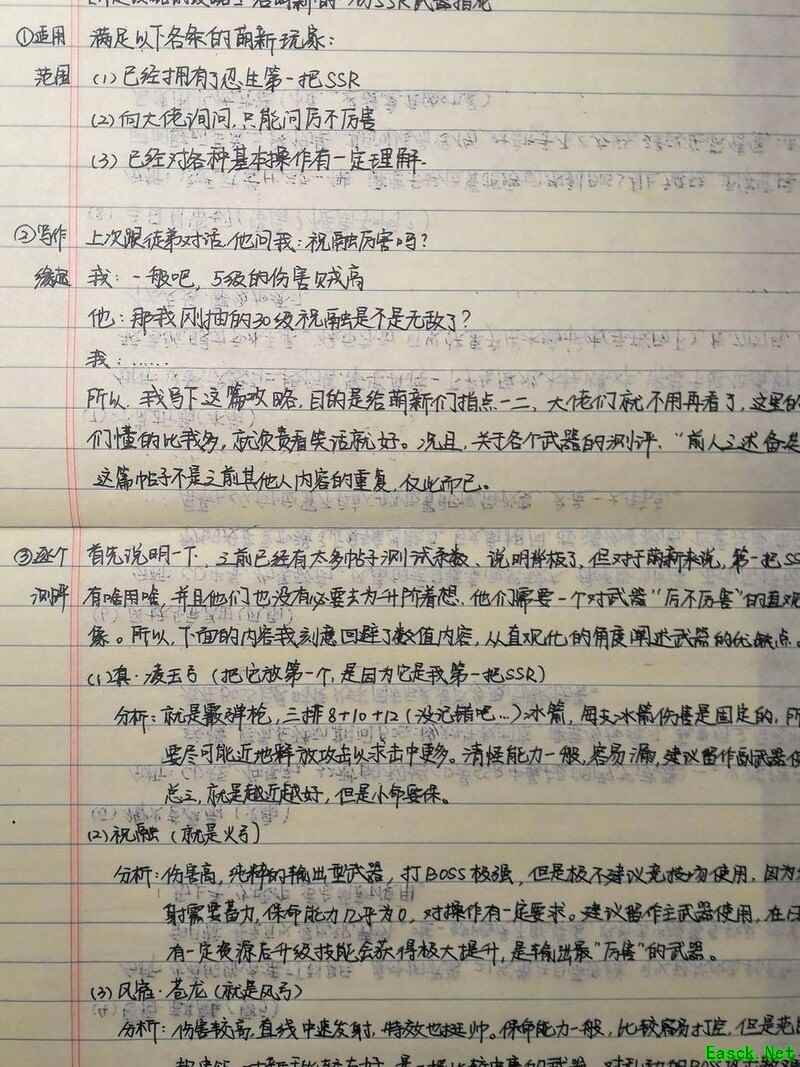 ①适用 满足以下各条的萌新玩家：
范围 (1)已经拥有了忍生第一把SSR
(2)向大佬询问，只能问厉不厉害
(3)已经对各种基本操作有一定理解.
②写作 上次跟徒弟对话，他问我：祝融厉害吗？
缘起 我：一般吧，5级的伤害贼高
他：那我刚抽的30级祝融是不是无敌了？
我：……
所以，我写下这篇攻略，目的是给萌新们指点一二，大佬们就不用再看了，这里的
们懂的比我多，就负责看笑话就好。况且，关于各个武器的测评，“前人之述备矣
这篇帖子不是之前其他人内容的重复，仅此而已。
③逐个 首先说明一下，之前已经有太多帖子测试系数、说明样板了，但对于萌新来说，第一把SS
测评 有啥用啥，并且他们也没有必要去为升阶着想，他们需要一个对武器“厉不厉害”的直观
象。所以，下面的内容我刻意回避了数值内容，从直观化的角度阐述武器的优缺点。
(1)真·凌玉弓（把它放第一个，是因为它是我第一把SSR）
分析：就是霰弹枪，三排8+10+12（没记错吧…）冰箭，每支冰箭伤害是固定的，所
要尽可能近地释放攻击以求击中更多。清怪能力一般，容易漏，建议留作副武器使
总之，就是越近越好，但是小命要保。
(2)祝融（就是火弓）
分析：伤害高，纯粹的输出型武器，打BOSS极强，但是极不建议竞技场使用，因为
射需要蓄力，保命能力几乎为0，对操作有一定要求。建议留作主武器使用，在
有一定资源后升级技能会获得极大提升，是输出最“厉害”的武器。
(3)风雷·苍龙（就是风弓）
分析：伤害较高，直线中速发射，特效也挺帅。保命能力一般，比较容易打空，但是
Easck.Net